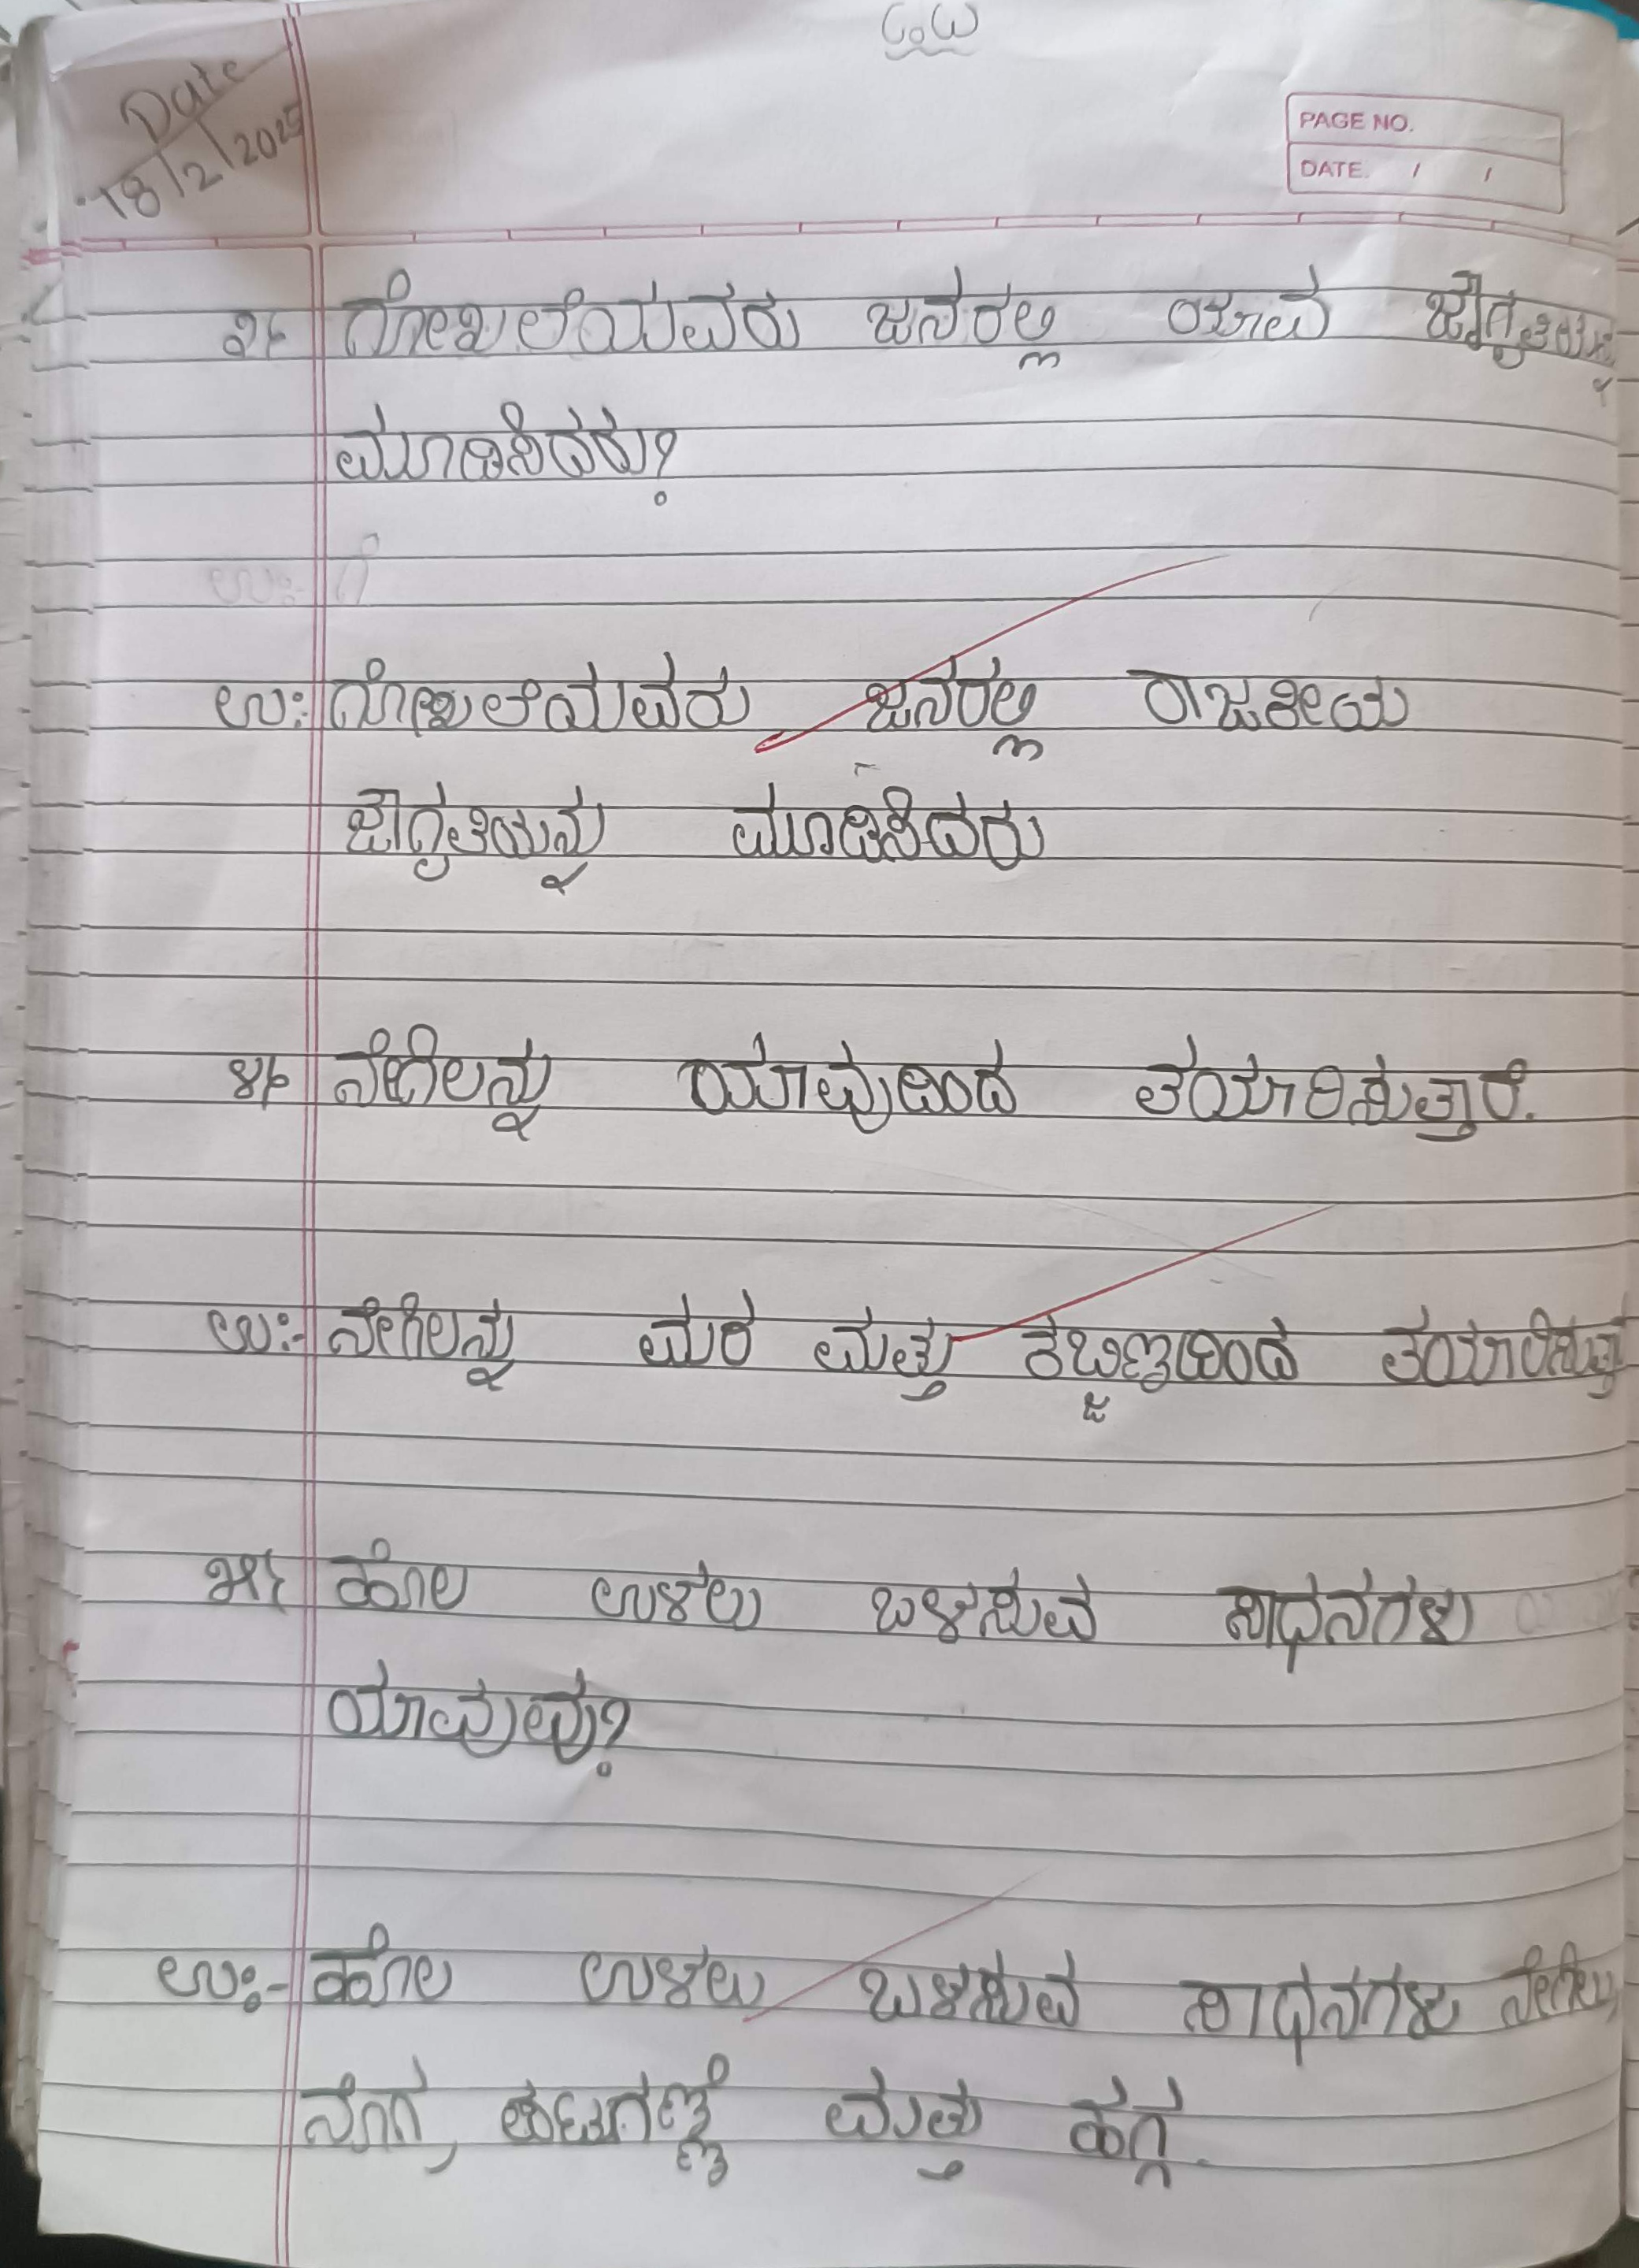 C.W
Date
18/2/2025
PAGE NO.
DATE. / /
೨೬ ಗೋಖಲೆಯವರು ಜನರಲ್ಲಿ ಯಾವ ಜಾಗೃತಿಯನ್ನು
ಮೂಡಿಸಿದರು?
ಉ:- ಗೋಖಲೆಯವರು ಜನರಲ್ಲಿ ರಾಜಕೀಯ
ಜಾಗೃತಿಯನ್ನು ಮೂಡಿಸಿದರು
೪೬ ನೇಗಿಲನ್ನು ಯಾವುದರಿಂದ ತಯಾರಿಸುತ್ತಾರೆ.
ಉ:- ನೇಗಿಲನ್ನು ಮರ ಮತ್ತು ಕಬ್ಬಿಣದಿಂದ ತಯಾರಿಸುತ್ತಾ
೫೬ ಹೊಲ ಉಳಲು ಬಳಸುವ ಸಾಧನಗಳು
ಯಾವುವು?
ಉ:- ಹೊಲ ಉಳಲು ಬಳಸುವ ಸಾಧನಗಳು ನೇಗಿಲು,
ನೊಗ, ಮತ್ತು ಹಗ್ಗ.